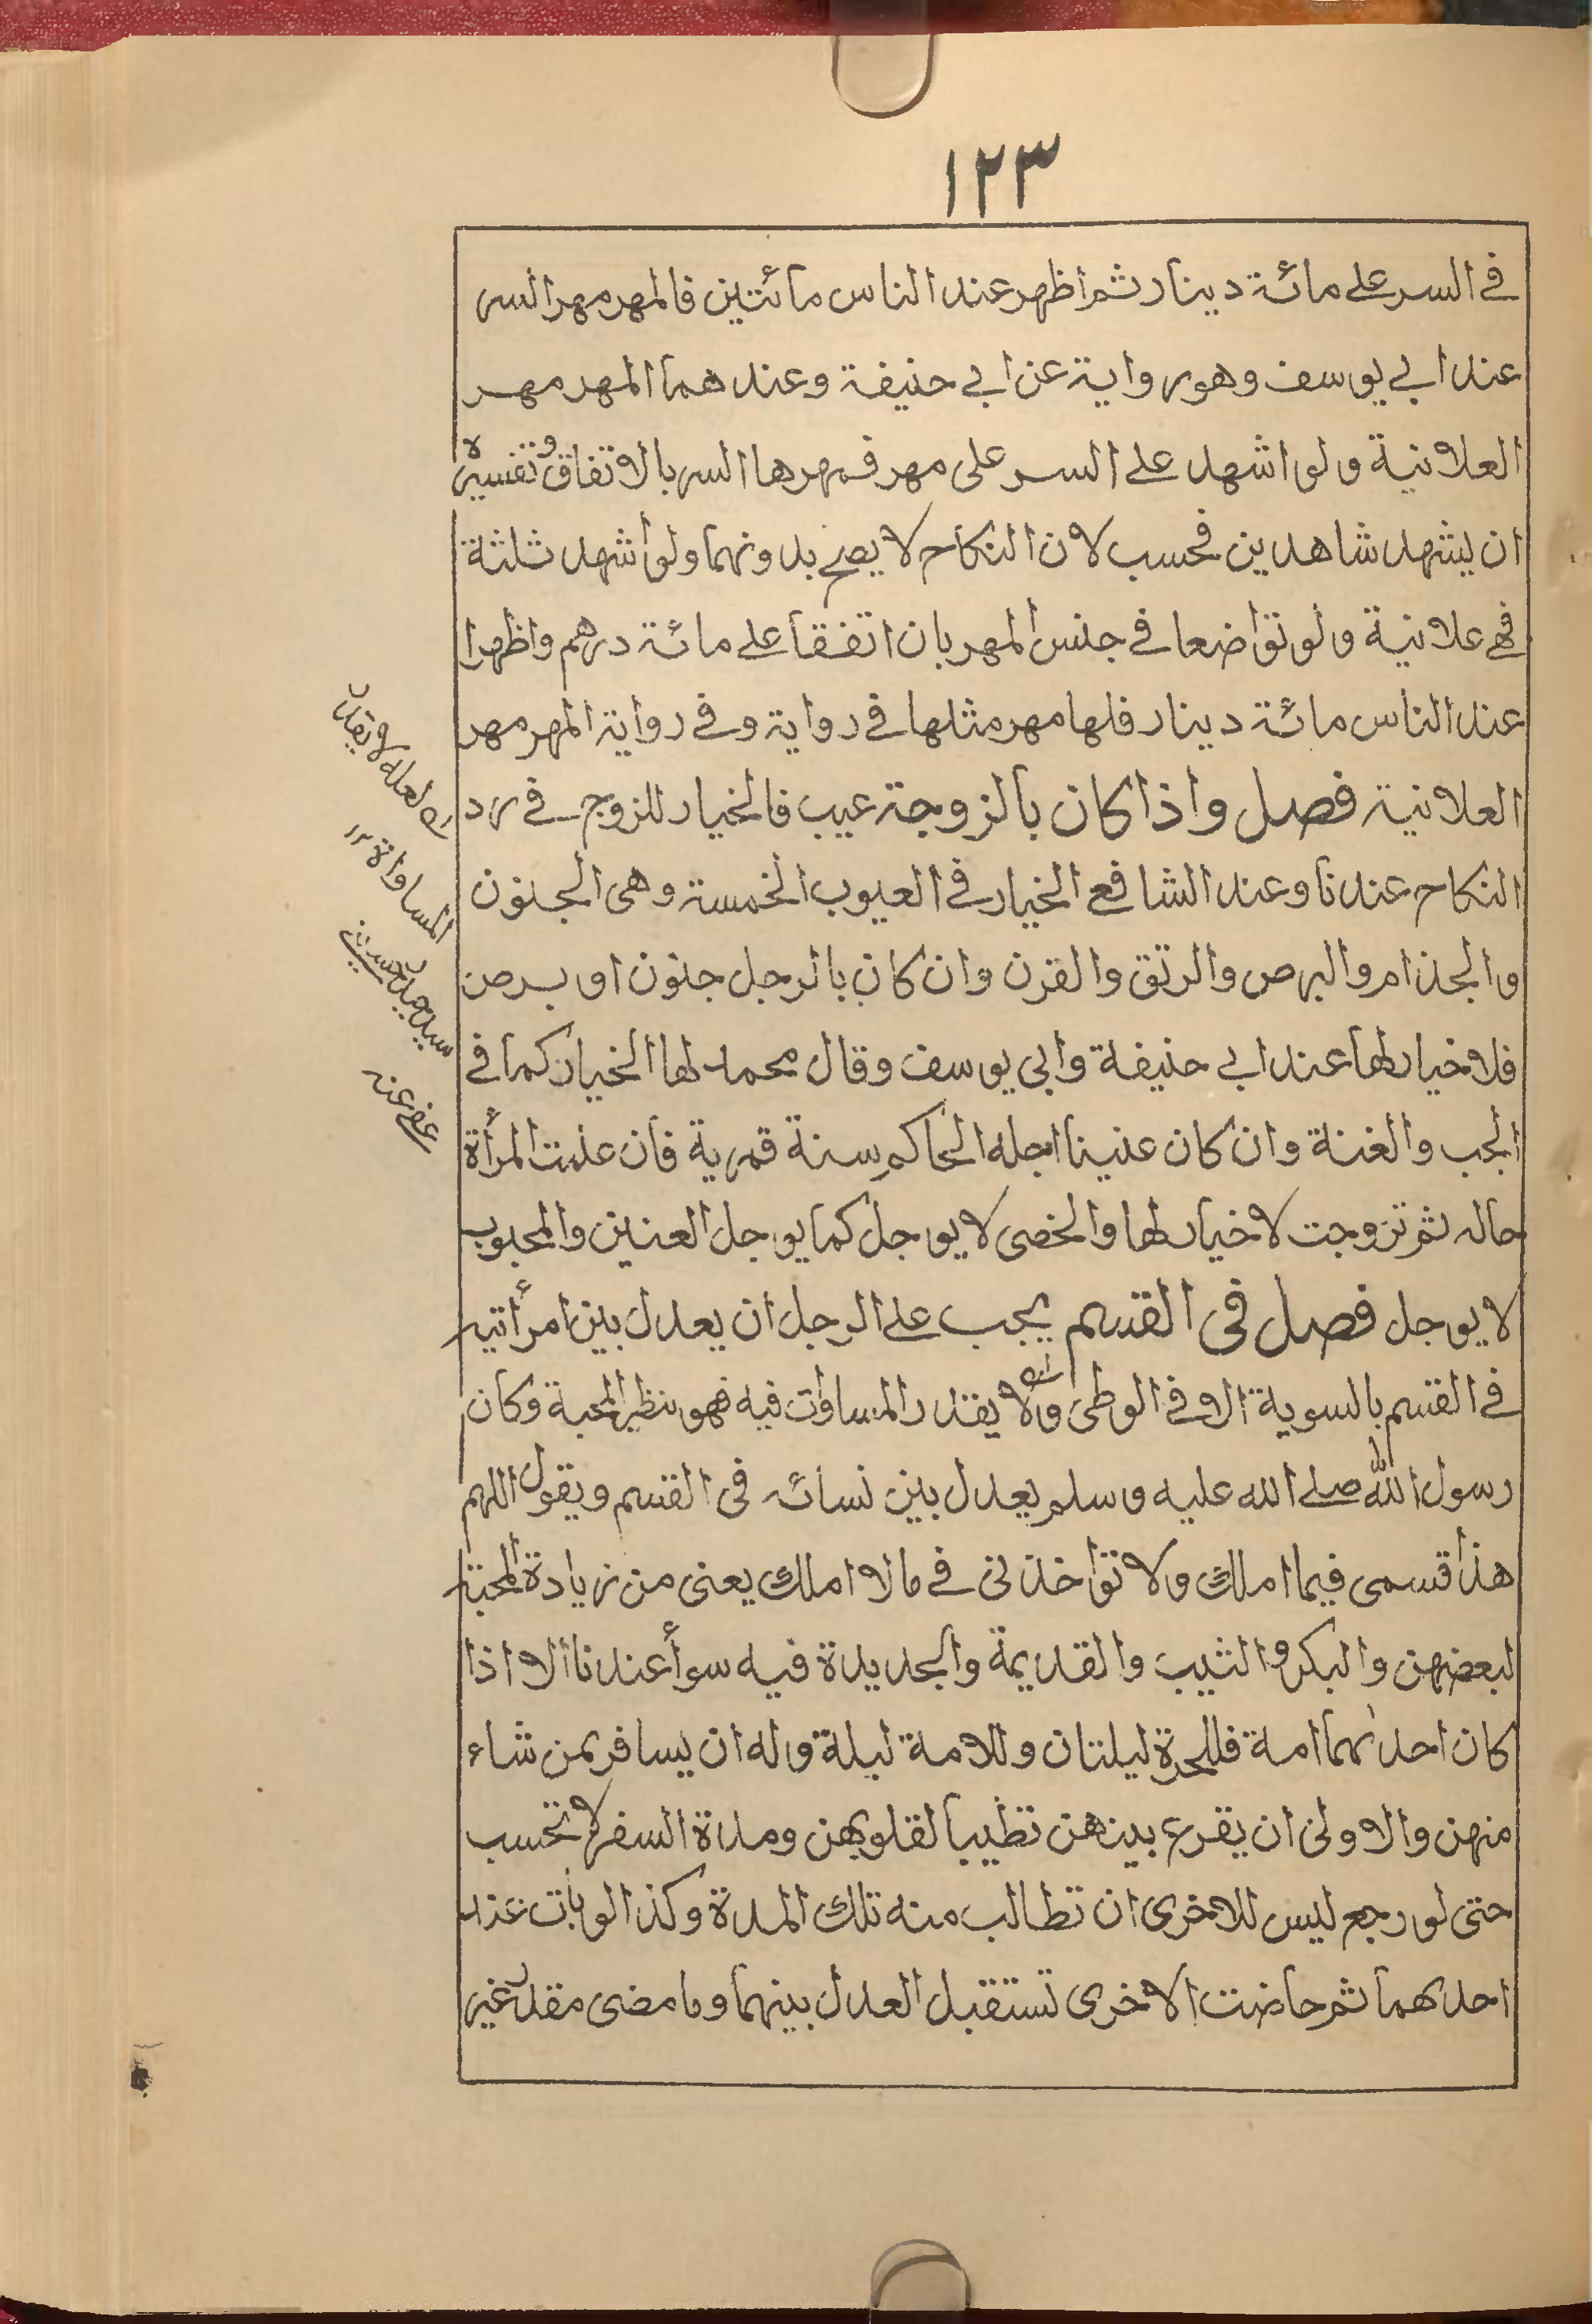 ١٢٣
في السر على مائة دينار ثم اظهر عند الناس مائتين فالمهر مهر السر
عند ابي يوسف وهو رواية عن ابي حنيفة وعندهما المهر مهر
العلانية ولو اشهد على السر على مهر فمهرها السر بالاتفاق وتفسيره
ان يشهد شاهدين فحسب لان النكاح لا يصح بدونهما ولو اشهد ثلثة
فهي علانية ولو تواضعا في جنس المهر بان اتفقا على مائة درهم واظهرا
عند الناس مائة دينار فلها مهر مثلها في رواية وفي رواية المهر مهر
العلانية فصل واذا كان بالزوجة عيب فالخيار للزوج في رد
النكاح عندنا وعند الشافعي الخيار في العيوب الخمسة وهى الجنون
والجذام والبرص والرتق والقرن وان كان بالرجل جنون او برص
فلا خيار لها عند ابي حنيفة وابي يوسف وقال محمد لها الخيار كما في
الجب والغنة وان كان عنينا اجله الحاكم سنة قمرية فان علمت المرأة
حاله ثم تزوجت لا خيار لها والخصى لا يوجل كما يوجل العنين والمجبوب
لا يوجل فصل فى القسم يجب على الرجل ان يعدل بين امرأتيه
في القسم بالسوية الا في الوطى ولا يقدر المساوات فيه فهو نظير المحبة وكان
رسول الله صلى الله عليه وسلم يعدل بين نسائه فى القسم ويقول اللهم
هذا قسمى فيما املك ولا تواخذنى في ما لا املك يعنى من زيادة المحبة
لبعضهن والبكر والثيب والقديمة والجديدة فيه سوأ عندنا الا اذا
كان احدىهما امة فللحرة ليلتان وللامة ليلة وله ان يسافر بمن شاء
منهن والاولى ان يقرع بينهن تطييبا لقلوبهن ومدة السفر لا تحسب
حتى لو رجع ليس للاخرى ان تطالب منه تلك المدة وكذا لو بات عند
احدٰهما ثم حاضت الاخرى تستقبل العدل بينهما وما مضى مقدار غير
لعله لا يقدر
المساواة ١٢
عفى عنه